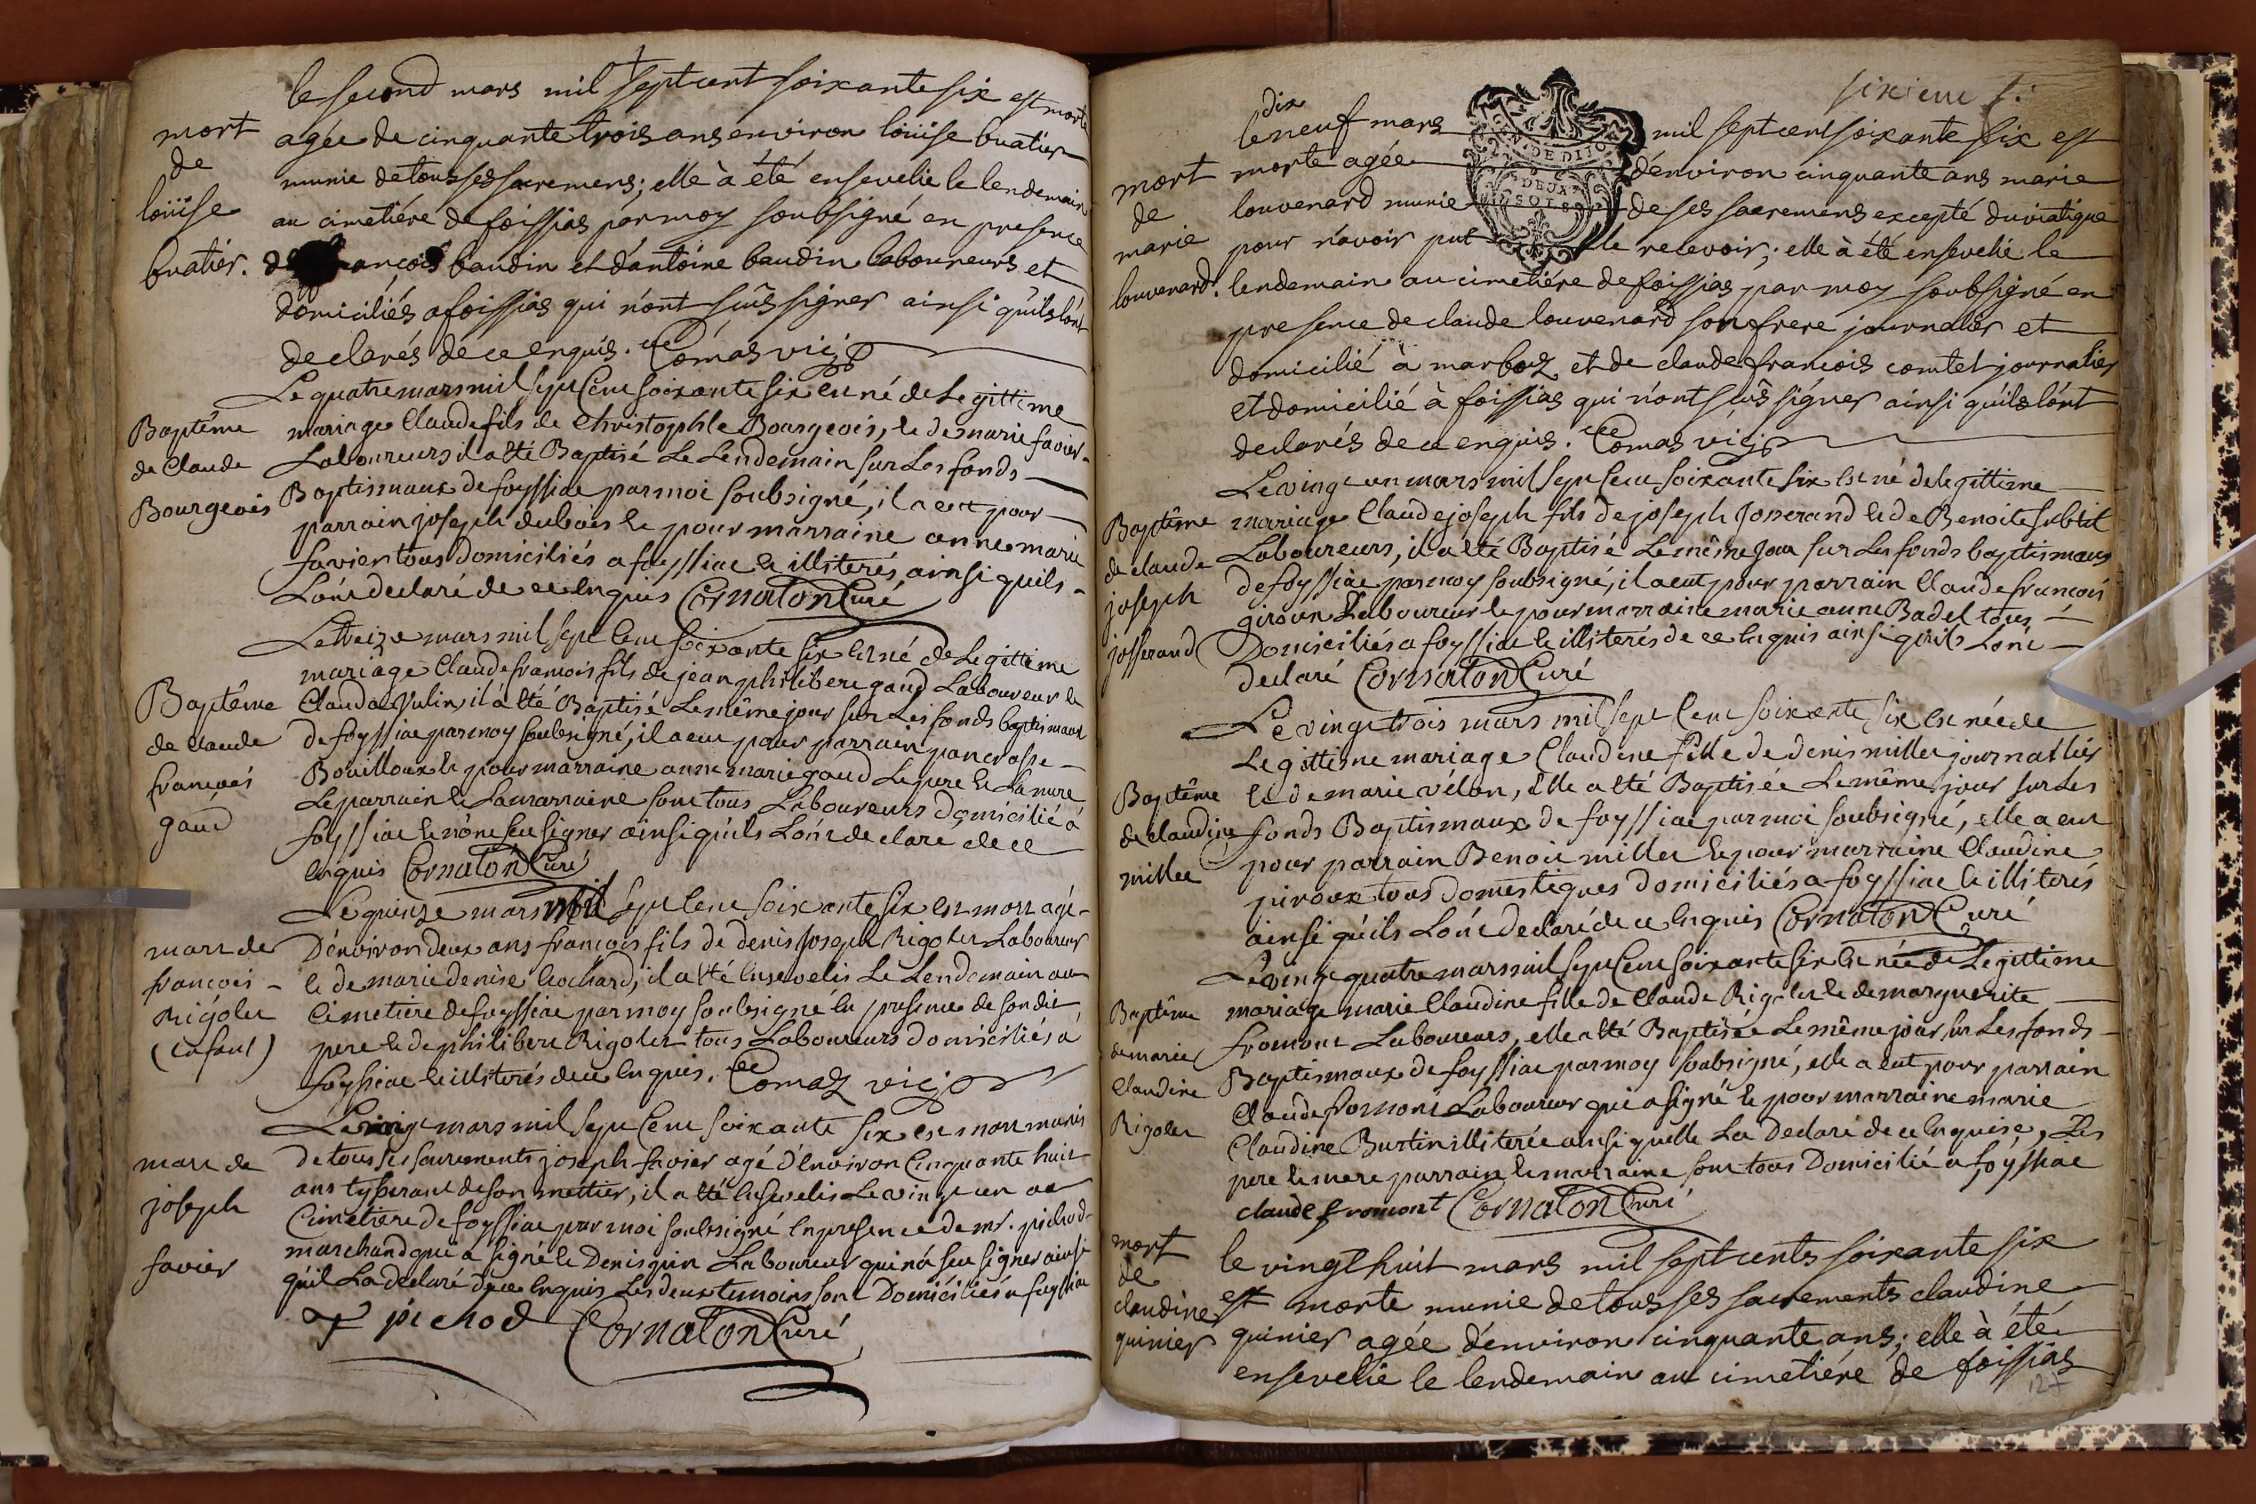 le second mars mil sept cent soixante six est morte
mort
de
loüise
buatier.
agée de cinquante trois ans environ loüise buatier
munie de tous ses sacremens; elle à été ensevelie le lendemain
au cimetiére de foissias par moy soubsigné en presence
de françois baudin et d'antoine baudin laboureurs et
domiciliés a foissias qui n'ont sçus signer ainsi qu'ils l'ont
declarés de ce enquis. Comas vic.
Le quatre mars mil sept cent soixante six est né de Legittime
Baptême
de Claude
Bourgeois
mariage Claude fils de Christophle Bourgeois, et de marie favier
Laboureurs il a été Baptisé Le Lendemain sur Les fonds
Baptismaux de foyssiac par moi soubsigné, il a eut pour
parrain joseph dubois et pour marraine anne marie
favier tous domiciliés a foyssiac et illiterés, ainsi quils
L'ont declaré de ce Enquis Cornaton Curé
Le treize mars mil sept Cent soixante six est né de Legittime
Baptême
de claude
françois
gaud
mariage Claude francois fils de jean philibert gaud Laboureur et
Claudae Vulin, il a été Baptisé Le même jour sur Les fonds baptismaux
de foyssiac par moy soubsigné, il a eut pour parrain pancrasse
Bouilloux et pour marraine anne marie gaud Le pere et La mere
Le parrain et La marraine sont tous Laboureurs domicilié a
foyssiac et n'ont sçu signer ainsi qu'ils L'ont declaré de ce
Enquis Cornaton Curé
Le quinze mars mil sept Cent soixante six est mort agé
mort de
françois
Rigolet
(Enfant)
D'environ deux ans françois fils de denis joseph Rigolet Laboureur
et de marie denise Cochard, il a été Ensevelis Le Lendemain au
Cimetiere de foyssiac par moy soubsigné En presence de son dit
pere et de philibert Rigolet tous Laboureurs domiciliés a
foyssiac et illiterés de ce Enquis. Comas vic.
Le vingt mars mil sept Cent soixante six est mort munis
mort de
joseph
favier
de tous ses sacrements joseph favier agé d'Environ Cinquante huit
ans tysserant de son mettier, il a été Ensevelis Le vingt un au
Cimetiere de foyssiac par moi soubsigné En presence de mr. pichod
marchand qui a signé et Denis quin Laboureur qui n'a sçu signer ainsi
qu'il La declaré de ce Enquis Les deux temoins sont Domiciliés a foyssiac
pichod Cornaton Curé
sixieme f.
dix
le neuf mars mil sept cent soixante six est
mort
de
marie
louvenard.
morte agée d'environ cinquante ans marie
louvenard munie de ses sacremens excepté du viatique
pour n'avoir put le recevoir; elle à été ensevelie le
GEN. DE DIJON
DEUX
SOLS
lendemain au cimetiére de foissias par moy soubsigné en
presence de claude louvenard son frere journalier et
domicilié à marboz et de claude françois comtet journalier
et domicilié à foissias qui n'ont sçus signer ainsi qu'ils l'ont
declarés de ce enquis. Comas vic.
Le vingt un mars mil sept Cent soixante six Est né de Legittime
Baptême
de claude
joseph
josserand
mariage Claude joseph fils de joseph Josserand et de Benoite subtil
Laboureurs, il a été Baptisé Le même Jour sur Les fonds baptismaux
de foyssiac par moy soubsigné, il a eut pour parrain Claude francois
giroux Laboureur et pour marraine marie anne Badel tous
Domiciliés a foyssiac et illiterés de ce Enquis ainsi qu'ils L'ont
declaré Cornaton Curé
Le vingt trois mars mil sept Cent soixante six est née de
Baptême
de claudine
millet
Legittime mariage Claudine fille de denis millet journallier
et de marie vélon, Elle a été Baptisée Le même jour sur Les
fonds Baptismaux de foyssiac par moi soubsigné, elle a eut
pour parrain Benoit millet et pour marraine Claudine
piroux tous domestiques domiciliés a foyssiac et illiterés
ainsi qu'ils L'ont declaré de ce Enquis Cornaton Curé
Le vingt quatre mars mil sept Cent soixante six Est née de Legittime
Baptême
de marie
Claudine
Rigolet
mariage marie Claudine fille de Claude Rigolet et de marguerite
fromont Laboureurs, elle a été Baptisée Le même jour sur Les fonds
Baptismaux de foyssiac par moy soubsigné, elle a eut pour parrain
Claude fromont Laboureur qui a signé et pour marraine marie
Claudine Burtin illiterée ainsi quelle La Declaré de ce Enquise, Les
pere et mere parrain et marraine sont tous Domicilié a foyssiac
claude fromont Cornaton Curé
mort
de
claudine
quinier
le vingt huit mars mil sept cents soixante six
est morte munie de tous ses sacrements claudine
quinier agée d'environ cinquante ans; elle à été
ensevelie le lendemain au cimetiére de foissias
127